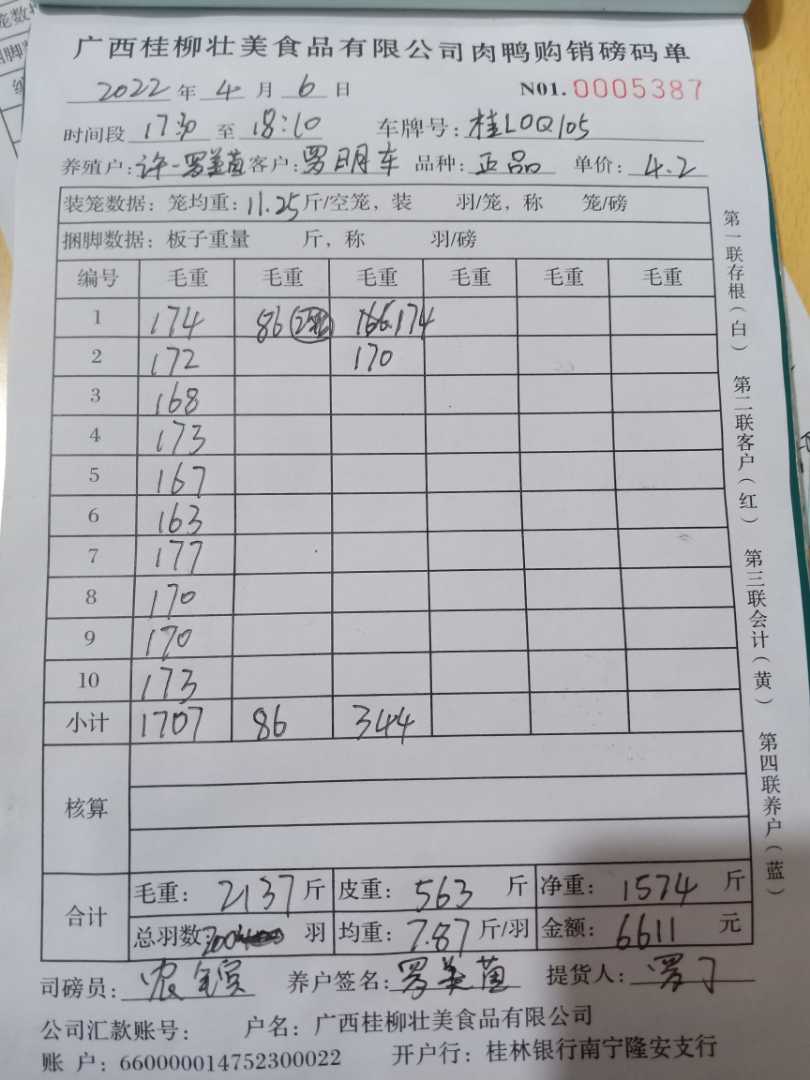 广西桂柳壮美食品有限公司肉鸭购销磅码单
2022 年 4 月 6 日 N01.0005387
时间段 17:30 至 18:10 车牌号: 桂L0Q105
养殖户: 许一罗美苗 客户: 罗明车 品种: 正品 单价: 4.2
装笼数据: 笼均重: 11.25 斤/空笼, 装 羽/笼, 称 笼/磅
捆脚数据: 板子重量 斤, 称 羽/磅
编号 毛重 毛重 毛重 毛重 毛重 毛重
1 174 86 174
2 172 170
3 168
4 173
5 167
6 163
7 177
8 170
9 170
10 173
小计 1707 86 344
核算
合计
毛重: 2137 斤 皮重: 563 斤 净重: 1574 斤
总羽数: 200 羽 均重: 7.87 斤/羽 金额: 6611 元
司磅员: 农 养户签名: 罗美苗 提货人: 罗
公司汇款账号: 户名: 广西桂柳壮美食品有限公司
账 户: 660000014752300022 开户行: 桂林银行南宁隆安支行
第一联存根(白) 第二联客户(红) 第三联会计(黄) 第四联养户(蓝)